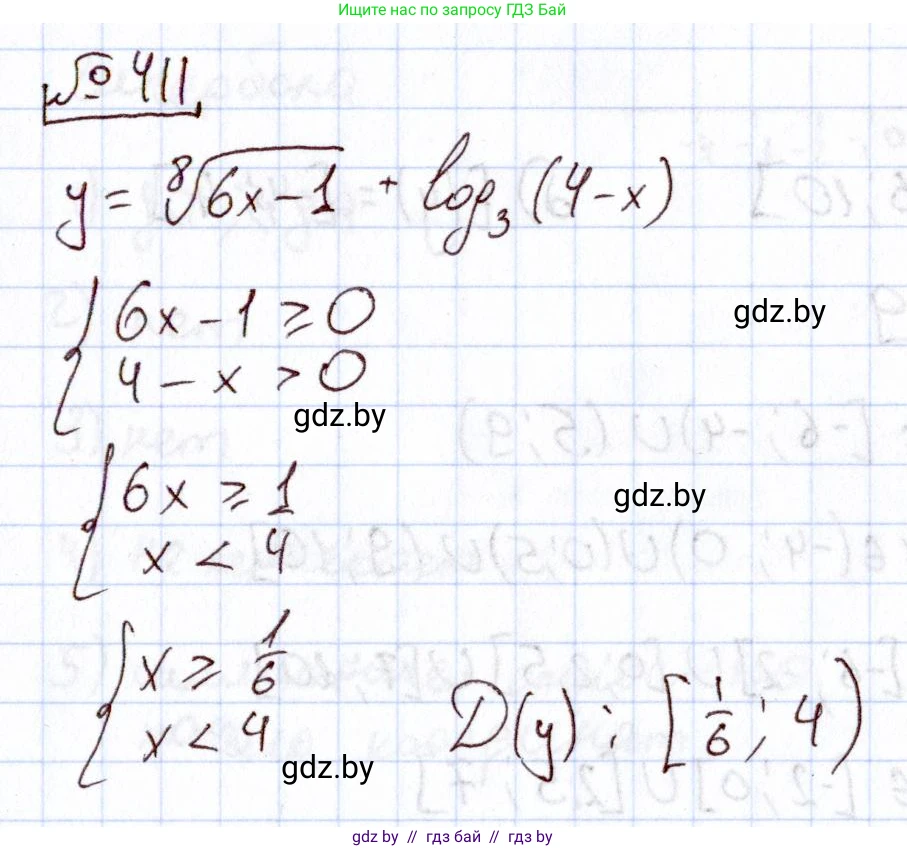 Ищите нас по запросу ГДЗ Бай
№ 411
y = ⁸√(6x - 1) + log₃ (4 - x)
{ 6x - 1 ≥ 0
4 - x > 0
gdz.by
gdz.by
{ 6x ≥ 1
x < 4
gdz.by
{ x ≥ 1/6
x < 4
D(y): [1/6; 4)
gdz.by
gdz.by // гдз бай // гдз by